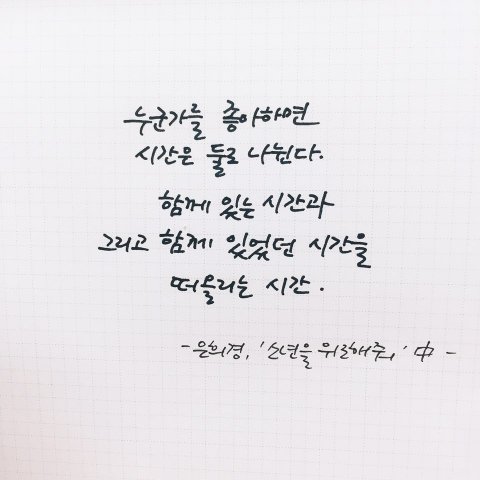 누군가를 좋아하면
시간은 둘로 나뉜다.
함께 있는 시간과
그리고 함께 있었던 시간을
떠올리는 시간.
- 은희경, '소년을 위로해줘,' 中 -